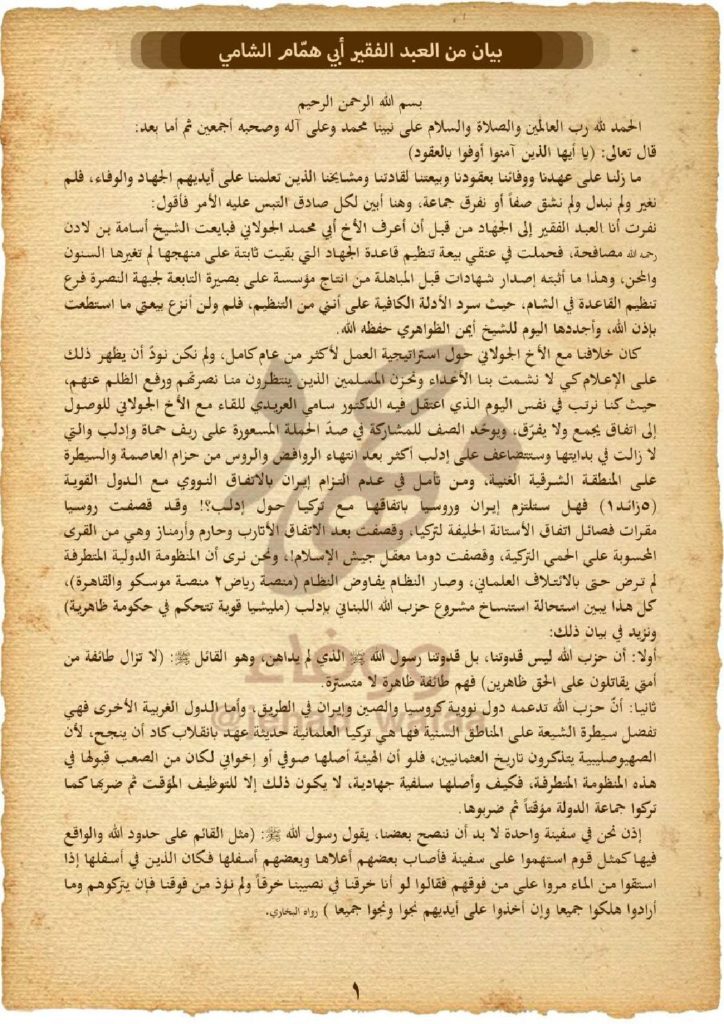 بيان من العبد الفقير أبي همّام الشامي
بسم الله الرحمن الرحيم
الحمد لله رب العالمين والصلاة والسلام على نبينا محمد وعلى آله وصحبه أجمعين ثم أما بعد:
قال تعالى: (يا أيها الذين آمنوا أوفوا بالعقود)
ما زلنا على عهدنا ووفائنا بعقودنا وبيعتنا لقادتنا ومشايخنا الذين تعلمنا على أيديهم الجهاد والوفاء، فلم
نغير ولم نبدل ولم نشق صفاً أو نفرق جماعة، وهنا أبين لكل صادق التبس عليه الأمر فأقول:
نفرت أنا العبد الفقير إلى الجهاد من قبل أن أعرف الأخ أبي محمد الجولاني فبايعت الشيخ أسامة بن لادن
رحمه الله مصافحة، فحملت في عنقي بيعة تنظيم قاعدة الجهاد التي بقيت ثابتة على منهجها لم تغيرها السنون
والمحن، وهذا ما أثبته إصدار شهادات قبل المباهلة من انتاج مؤسسة على بصيرة التابعة لجبهة النصرة فرع
تنظيم القاعدة في الشام، حيث سرد الأدلة الكافية على أنني من التنظيم، فلم ولن أنزع بيعتي ما استطعت
بإذن الله، وأجددها اليوم للشيخ أيمن الظواهري حفظه الله.
كان خلافنا مع الأخ الجولاني حول استراتيجية العمل لأكثر من عام كامل، ولم نكن نودّ أن يظهر ذلك
على الإعلام كي لا نشمت بنا الأعداء ونحزن المسلمين الذين ينتظرون منا نصرتهم ورفع الظلم عنهم،
حيث كنا نرتب في نفس اليوم الذي اعتقل فيه الدكتور سامي العريدي للقاء مع الأخ الجولاني للوصول
إلى اتفاق يجمع ولا يفرّق، ويوحّد الصف للمشاركة في صدّ الحملة المسعورة على ريف حماة وإدلب والتي
لا زالت في بدايتها وستتضاعف على إدلب أكثر بعد انتهاء الروافض والروس من حزام العاصمة والسيطرة
على المنطقة الشرقية الغنية، ومن تأمل في عدم التزام إيران بالاتفاق النووي مع الدول القوية
(٥زائد١) فهل ستلتزم إيران وروسيا باتفاقها مع تركيا حول إدلب؟! وقد قصفت روسيا
مقرات فصائل اتفاق الأستانة الحليفة لتركيا، وقصفت بعد الاتفاق الأتارب وحارم وأرمناز وهي من القرى
المحسوبة على الحمى التركية، وقصفت دوما معقل جيش الإسلام!، ونحن نرى أن المنظومة الدولية المتطرفة
لم ترض حتى بالائتلاف العلماني، وصار النظام يفاوض النظام (منصة رياض٢ منصة موسكو والقاهرة)،
كل هذا يبين استحالة استنساخ مشروع حزب الله اللبناني بإدلب (مليشيا قوية تتحكم في حكومة ظاهرية)
ونزيد في بيان ذلك:
أولا: أن حزب الله ليس قدوتنا، بل قدوتنا رسول الله ﷺ الذي لم يداهن، وهو القائل ﷺ: (لا تزال طائفة من
أمتي يقاتلون على الحق ظاهرين) فهم طائفة ظاهرة لا متستّرة.
ثانيا: أنّ حزب الله تدعمه دول نووية كروسيا والصين وإيران في الطريق، وأما الدول الغربية الأخرى فهي
تفضل سيطرة الشيعة على المناطق السنية فها هي تركيا العلمانية حديثة عهد بانقلاب كاد أن ينجح، لأن
الصهيوصليبية يتذكرون تاريخ العثمانيين، فلو أن الهيئة أصلها صوفي أو إخواني لكان من الصعب قبولها في
هذه المنظومة المتطرفة، فكيف وأصلها سلفية جهادية، لا يكون ذلك إلا للتوظيف المؤقت ثم ضربها كما
تركوا جماعة الدولة مؤقتاً ثم ضربوها.
إذن نحن في سفينة واحدة لا بد أن ننصح بعضنا، يقول رسول الله ﷺ: (مثل القائم على حدود الله والواقع
فيها كمثل قوم استهموا على سفينة فأصاب بعضهم أعلاها وبعضهم أسفلها فكان الذين في أسفلها إذا
استقوا من الماء مروا على من فوقهم فقالوا لو أنا خرقنا في نصيبنا خرقاً ولم نؤذ من فوقنا فإن يتركوهم وما
أرادوا هلكوا جميعا وإن أخذوا على أيديهم نجوا ونجوا جميعا ) رواه البخاري.
١
@jehad_wafaa